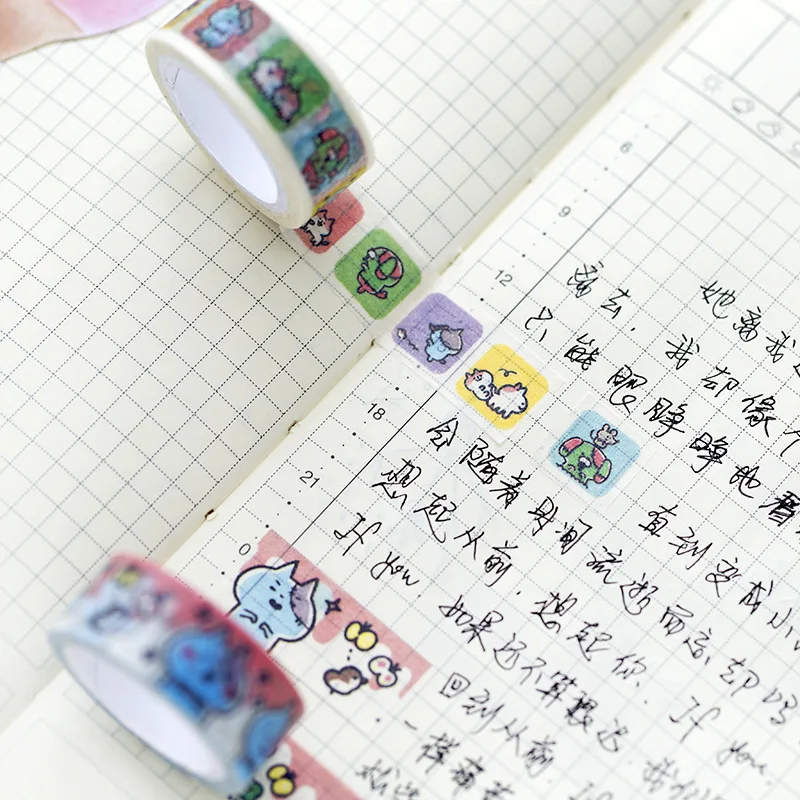 6
9
12
18
21
0
她离我
离去，我却像个
只能眼睁睁地看
直到变成小
会随着时间流逝而忘却吗
想起从前．想起你．If you．
If you．如果还不算很迟．我们
回到从前．If
一样